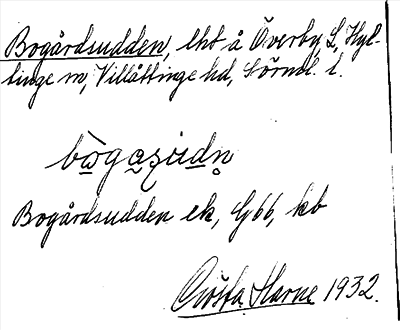 Bogårdsudden, lht å Överby, L. Hyl-
tinge sn, Villåttinge hd, Sörml. l.
Bogårdsudden ek, G66, kb
Gösta Harne 1932.